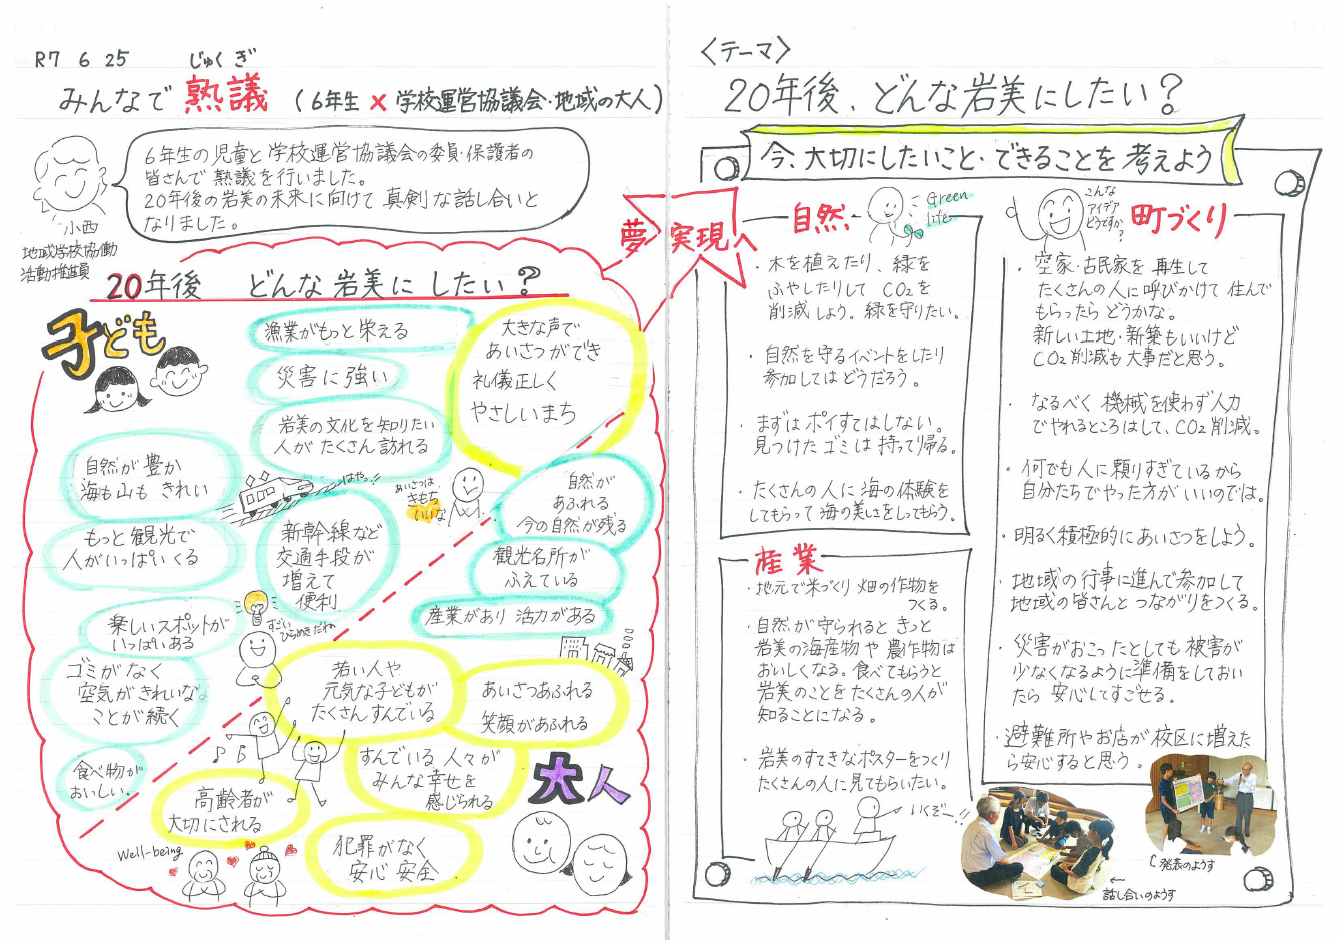 R7 6 25
じゅくぎ
みんなで 熟議 (6年生 × 学校運営協議会・地域の大人)
6年生の児童と学校運営協議会の委員・保護者の
皆さんで熟議を行いました。
20年後の岩美の未来に向けて 真剣な話し合いと
なりました。
小西
地域学校協働
活動推進員
20年後 どんな岩美に したい?
子ども
漁業がもっと栄える
災害に強い
岩美の文化を知りたい
人が たくさん訪れる
大きな声で
あいさつができ
礼儀正しく
やさしいまち
自然が豊か
海も山も きれい
はやっ!!
あいさつは
きもち
いいな
自然が
あふれる
今の自然が残る
もっと観光で
人がいっぱいくる
新幹線など
交通手段が
増えて
便利
観光名所が
ふえている
産業があり 活力がある
楽しいスポットが
いっぱいある
すごい
ひらめきだね
ゴミがなく
空気がきれいな
ことが続く
若い人や
元気な子どもが
たくさんすんでいる
あいさつあふれる
笑顔があふれる
食べ物が
おいしい。
すんでいる人々が
みんな幸せを
感じられる
大人
高齢者が
大切にされる
Well-being
犯罪がなく
安心 安全
夢 実現へ
〈テーマ〉
20年後、どんな岩美にしたい?
今、大切にしたいこと・できることを考えよう
自然
Green
life
・木を植えたり、緑を
ふやしたりして CO₂を
削減しよう。緑を守りたい。
・自然を守るイベントをしたり
参加してはどうだろう。
・まずは ポイすてはしない。
見つけたゴミは 持って帰る。
・たくさんの人に 海の体験を
してもらって 海の美しさをしってもらう。
産業
・地元で米づくり 畑の作物を
つくる。
・自然が守られると きっと
岩美の海産物や 農作物は
おいしくなる。食べてもらうと
岩美のことをたくさんの人が
知ることになる。
・岩美のすてきなポスターをつくり
たくさんの人に見てもらいたい。
いくぞー!!
こんな
アイデア
どうですか?
町づくり
・空家・古民家を再生して
たくさんの人に呼びかけて 住んで
もらったら どうかな。
新しい土地・新築もいいけど
CO₂削減も大事だと思う。
・なるべく 機械を使わず人力
でやれるところはして、CO₂削減。
・何でも人に頼りすぎているから
自分たちでやった方がいいのでは。
・明るく積極的にあいさつをしよう。
・地域の行事に進んで参加して
地域の皆さんとつながりをつくる。
・災害がおこったとしても 被害が
少なくなるように準備をしておい
たら 安心してすごせる。
・避難所やお店が校区に増えた
ら安心すると思う。
発表のようす
話し合いのようす